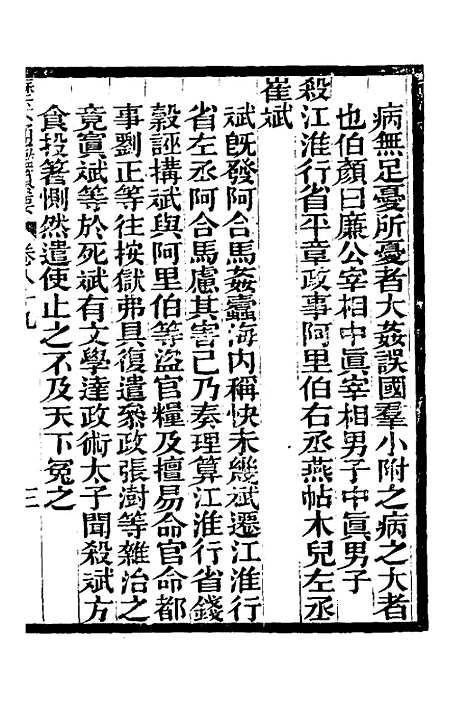 病無足憂所憂者大姦誤國羣小附之病之大者
也伯顏曰廉公宰相中眞宰相男子中眞男子
殺江淮行省平章政事阿里伯右丞燕帖木兒左丞
崔斌
斌旣發阿合馬姦蠹海內稱快未幾斌遷江淮行
省左丞阿合馬慮其害己乃奏理算江淮行省錢
穀誣搆斌與阿里伯等盜官糧及擅易命官命都
事劉正等往按獄弗具復遣叅政張澍等雜治之
竟寘斌等於死斌有文學達政術太子聞殺斌方
食投箸惻然遣使止之不及天下冤之
卷八十九
三